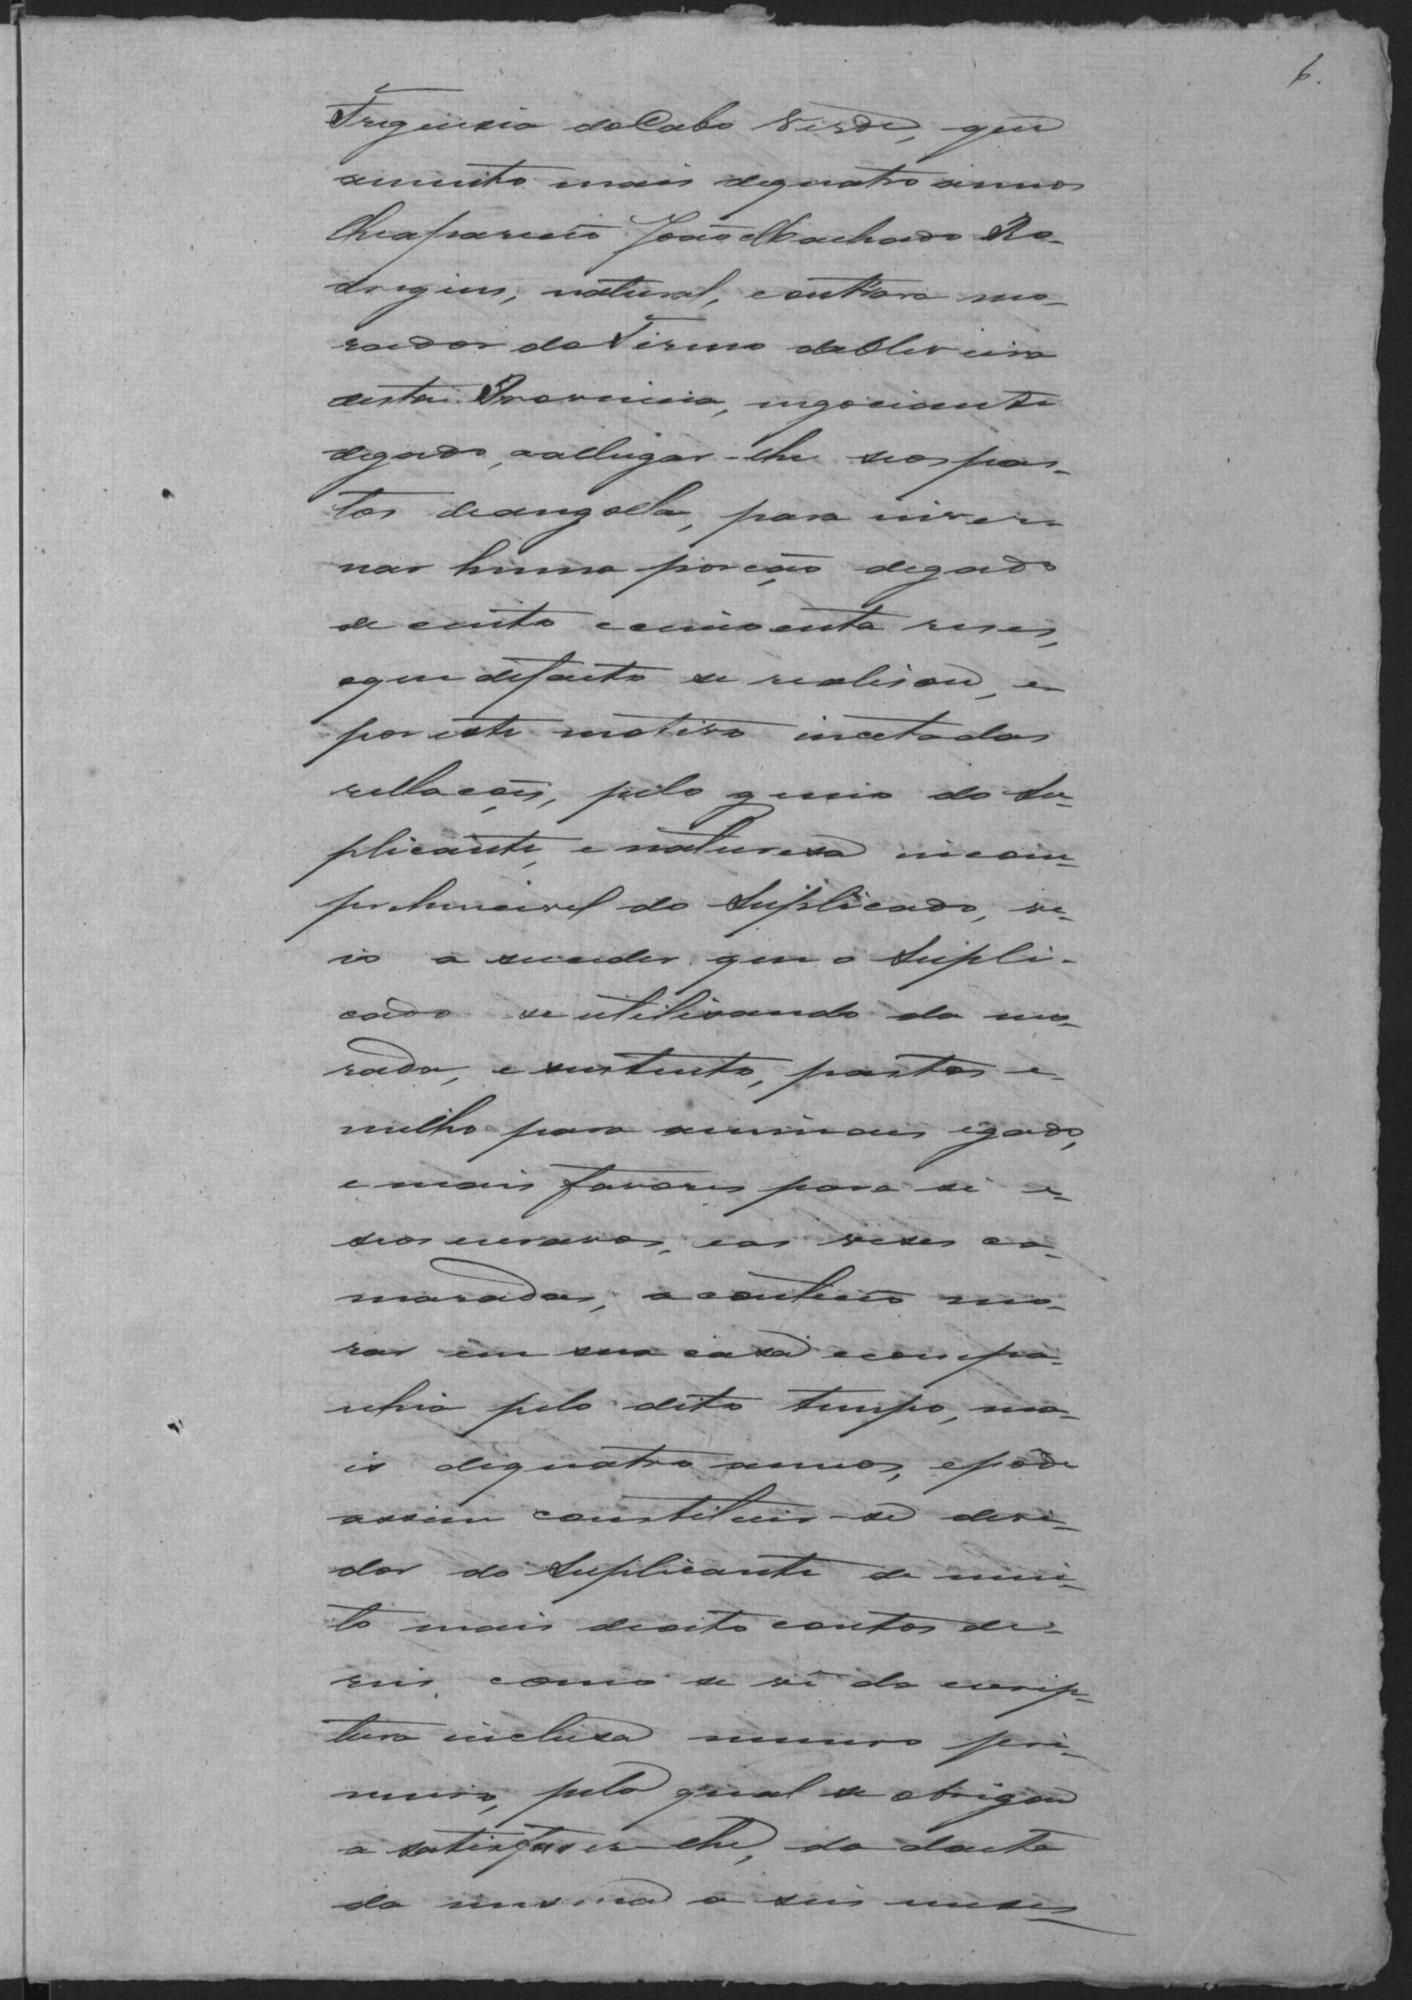 6.
Freguesia do Cabo Verde, que
a muito mais de quatro annos
lhe apareceo João Machado Ro-
drigues, natural, e outrora mo-
rador do Termo da Oliveira
desta Provincia, negociante
de gado, a allugar-lhe seos pas-
tos de angolla, para inver-
nar huma porção de gado
de cento e cincoenta reses,
o que de facto se realisou, e
por este motivo incetadas
rellações, pelo genio do Su-
plicante, e naturesa incom-
prehencivel do Suplicado, ve-
io a suceder que o Supli-
cado se utilisando da mo-
rada, e sustento, pastos e
milho para animais e gado,
e mais favores para si e
seos escravos, e as veses ca-
maradas, aconteceo mo-
rar em sua casa e compa-
nhia pelo dito tempo, ma-
is de quatro annos, e pôde
assim constituir-se deve-
dor do Suplicante de mui-
to mais de oito contos de
reis como se vê da escrip-
tura inclusa numero pri-
meiro, pela qual se obrigou
a satisfaser-lhe, da dacta
da mesma a seis meses